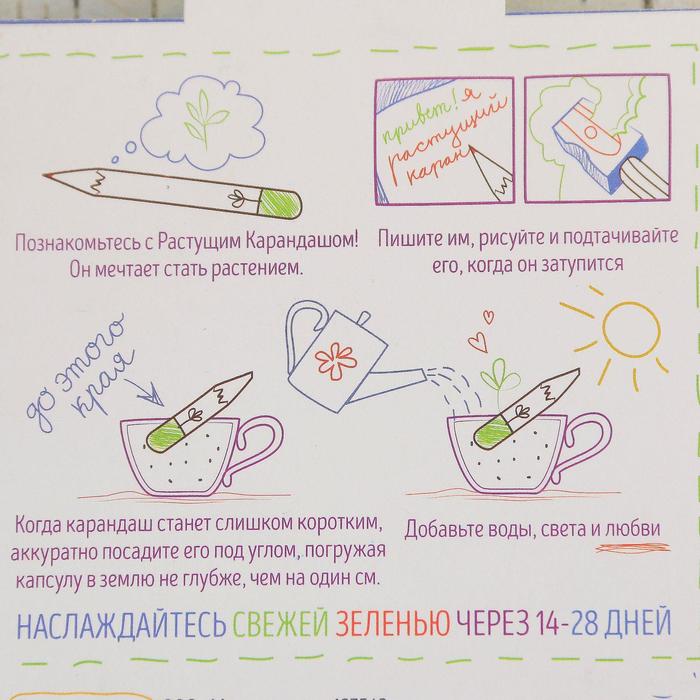 Познакомьтесь с Растущим Карандашом!
Он мечтает стать растением.
привет! я
растущий
каран
Пишите им, рисуйте и подтачивайте
его, когда он затупится
до этого
края
Когда карандаш станет слишком коротким,
аккуратно посадите его под углом, погружая
капсулу в землю не глубже, чем на один см.
Добавьте воды, света и любви
НАСЛАЖДАЙТЕСЬ СВЕЖЕЙ ЗЕЛЕНЬЮ ЧЕРЕЗ 14-28 ДНЕЙ